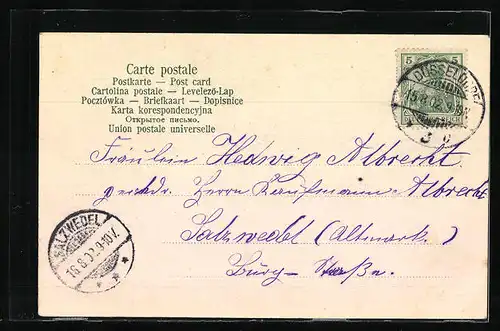 Carte postale
Postkarte — Post card
Cartolina postale — Levelező-Lap
Pocztówka — Briefkaart — Dopisnice
Karta korespondencyjna
Открытое письмо.
Union postale universelle
5 5
DÜSSELDORF
Fräulein Hedwig Albrecht
Herrn Kaufmann Albrecht
Salzwedel (Altmark.)
Burg-Straße.
SALZWEDEL